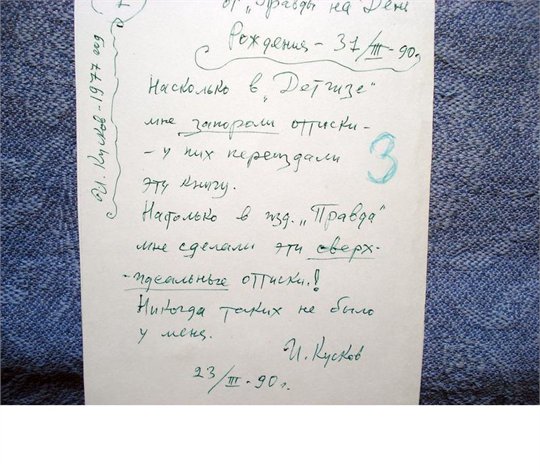 от „Правды на День
Рождения - 31/III-90г
Насколько в „Детгизе"
мне запороли оттиски -
- у них переиздали
эту книгу.
Натолько в изд. „Правда"
мне сделали эти сверх-
-идеальные оттиски!
Никогда таких не было
у меня.
И. Кусков
23/III-90г.
3
И. Кусков - 1977 год